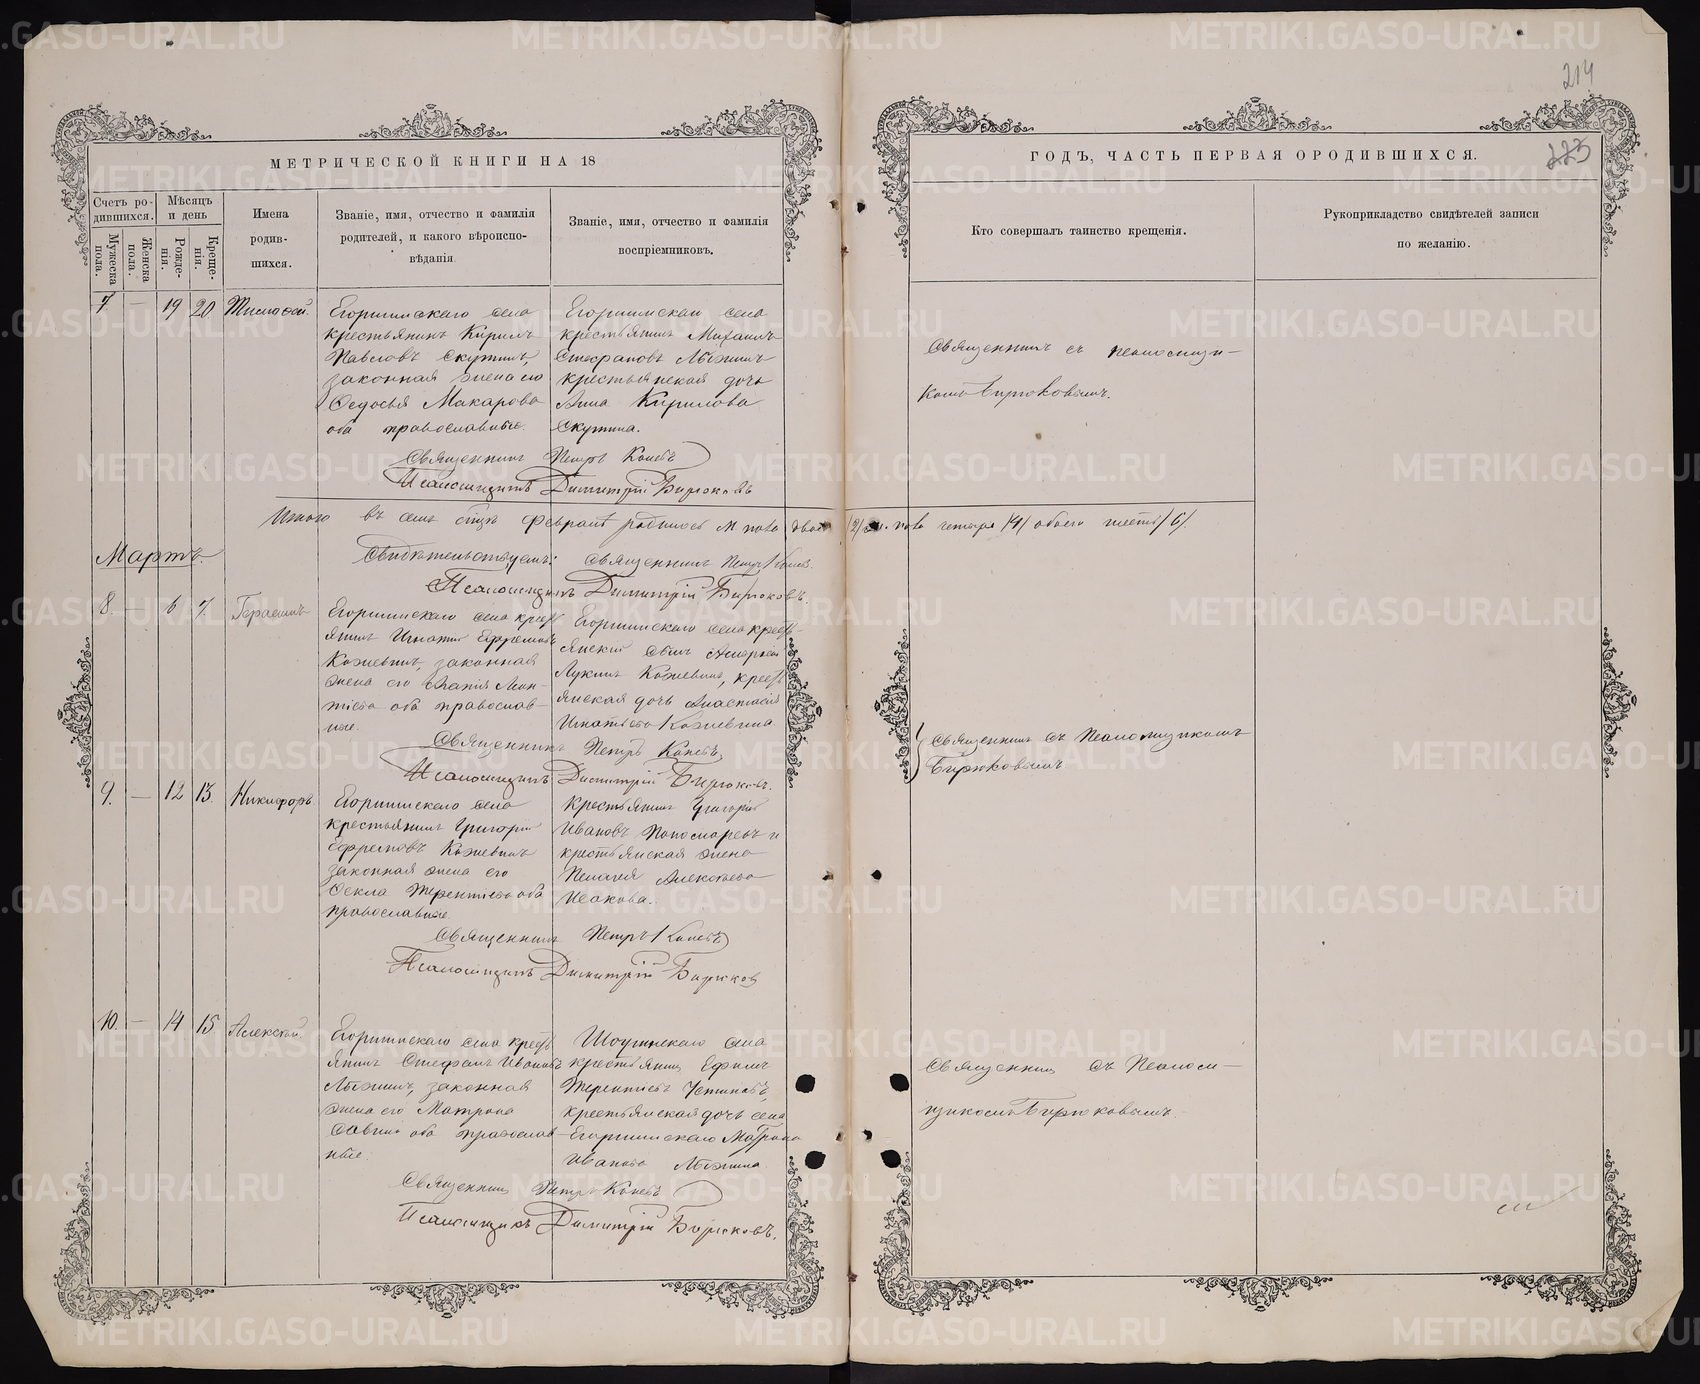 214
223
МЕТРИЧЕСКОЙ КНИГИ НА 18
ГОДЪ, ЧАСТЬ ПЕРВАЯ О РОДИВШИХСЯ.
Счетъ ро-
дившихся.
Мужеска
пола.
Женска
пола.
Мѣсяцъ
и день
Рожде-
нія.
Креще-
нія.
Имена
родив-
шихся.
Званіе, имя, отчество и фамилія
родителей, и какого вѣроиспо-
вѣданія.
Званіе, имя, отчество и фамилія
воспріемниковъ.
Кто совершалъ таинство крещенія.
Рукоприкладство свидѣтелей записи
по желанію.
7. — 19 20 Тимофей.
Егоршинскаго села
крестьянинъ Кирилъ
Павловъ Скутинъ,
законная жена его
Ѳедосья Макарова
оба православные.
Егоршинскаго села
крестьянинъ Михаилъ
Стефановъ Лыжинъ
крестьянская дочь
Анна Кирилова
Скутина.
Священникъ съ псаломщи-
комъ Бирюковымъ.
Священникъ Петръ
Псаломщикъ Димитрій Бирюковъ
Итого въ семъ февралѣ родилось м. пола двое /2/ ж. пола четыре /4/ обоего шесть /6/.
Мартъ.
Свидѣтельствуемъ: Священникъ Петръ
Псаломщикъ Димитрій Бирюковъ.
8. — 6 7. Герасимъ
Егоршинскаго села кресть
янинъ Игнатій Ефремовъ
Кожевинъ, законная
жена его
оба православ-
ные.
Егоршинскаго села кресть-
янскій сынъ
Лукинъ Кожевинъ, кресть
янская дочь Анастасія
Игнатьева Кожевина
Священникъ Петръ
Псаломщикъ Димитрій Бирюковъ.
Священникъ съ Псаломщикомъ
Бирюковымъ
9. — 12 13. Никифоръ.
Егоршинскаго села
крестьянинъ Григорій
Ефремовъ Кожевинъ
законная жена его
Ѳекла Терентіева оба
православные
Крестьянинъ Григорій
Ивановъ Пономаревъ и
крестьянская жена
Пелагея Алексѣева
Исакова.
Священникъ Петръ
Псаломщикъ Димитрій Бирюков
10. — 14 15 Алексѣй.
Егоршинскаго села кресть
янинъ Стефанъ Ивановъ
Лыжинъ, законная
жена его Матрона
Савина оба православ-
ные.
села
крестьянинъ Ефимъ
Терентіевъ Устиновъ,
крестьянская дочь села
Егоршинскаго Матрона
Иванова Лыжина.
Священникъ съ Псалом-
щикомъ Бирюковымъ
Священникъ Петръ
Псаломщикъ Димитрій Бирюковъ.
METRIKI.GASO-URAL.RU